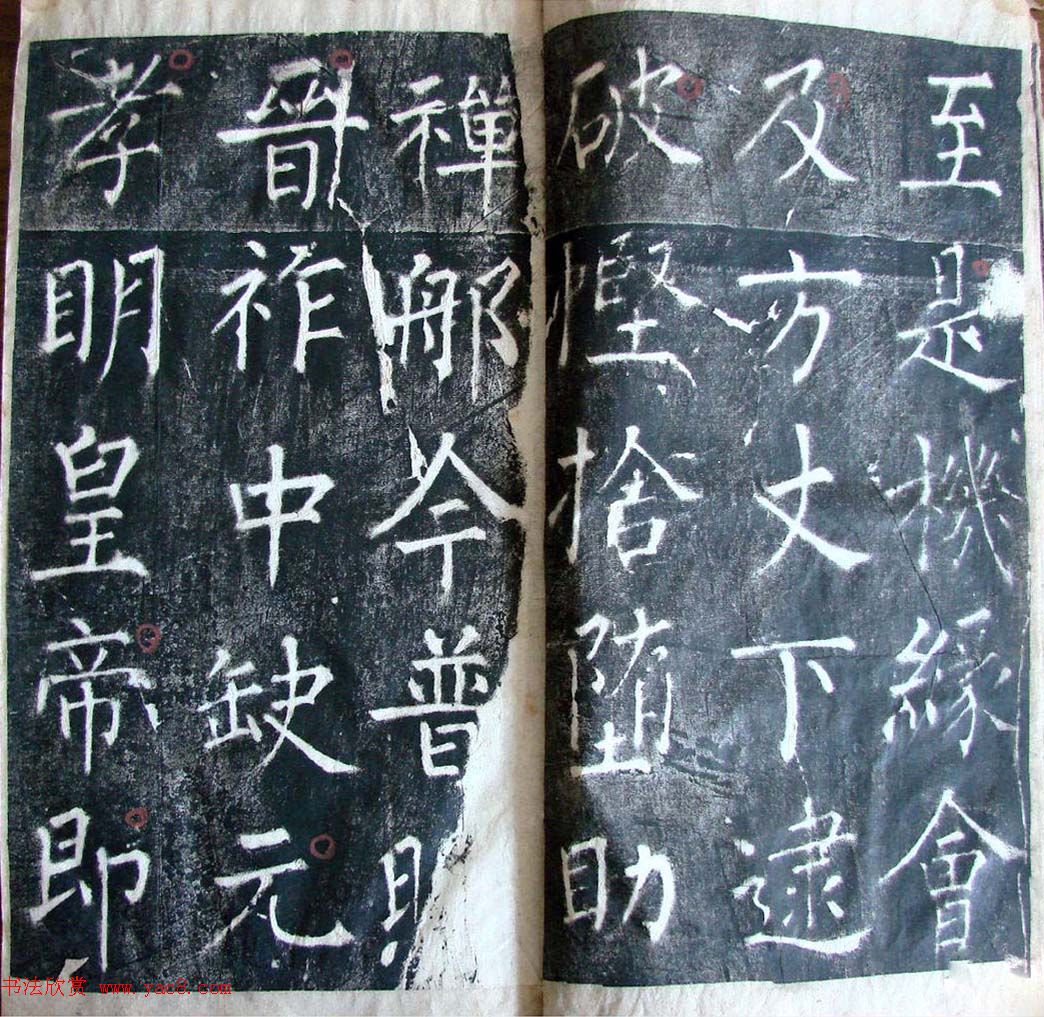 至是機緣會
及方丈下逮
破慳捨墮助
禪那今普
晉祚中缺元
孝明皇帝即
书法欣赏 www.yac8.com